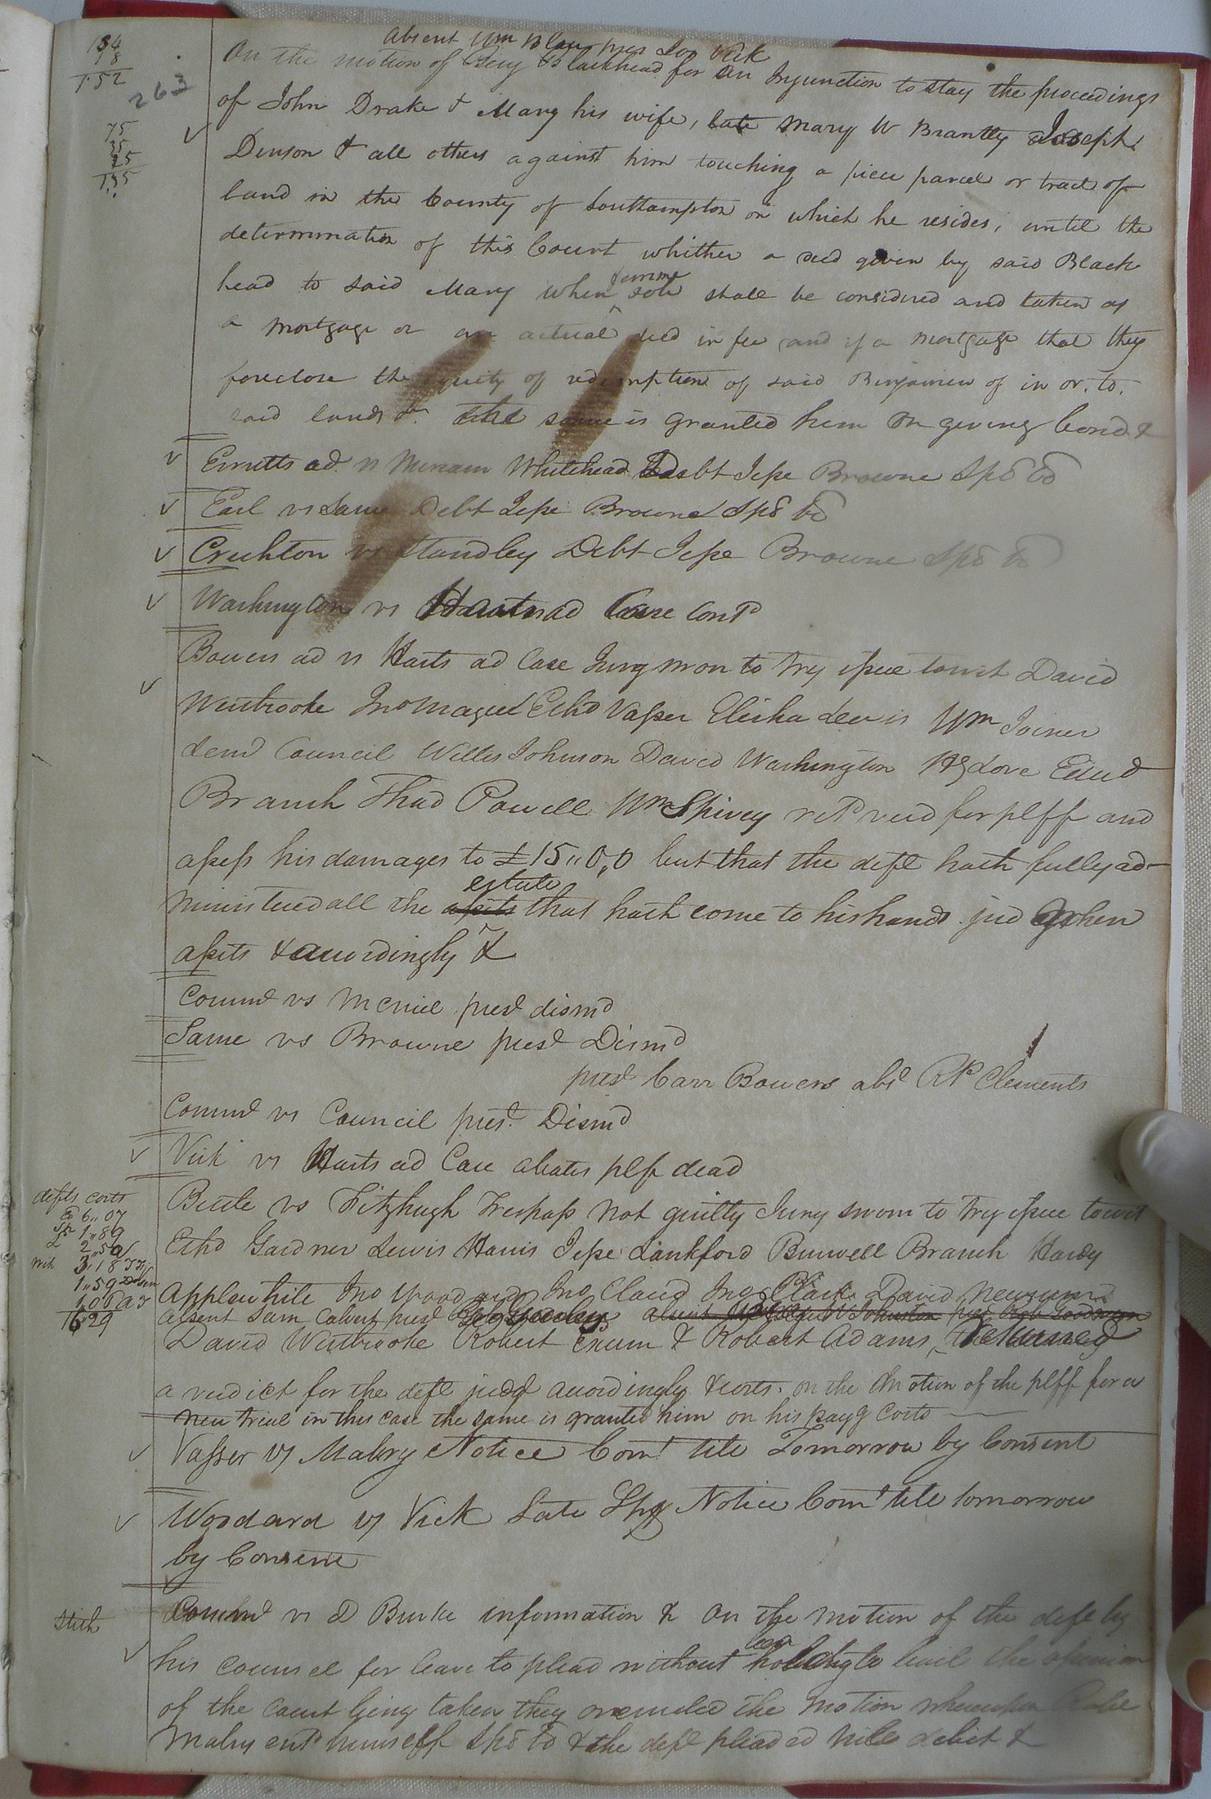 184
78
1.52
263
75
35
25
1.35
Absent Wm Blow pres Jos Vick
On the motion of Benj Blackhead for an Injunction to stay the proceedings
of John Drake & Mary his wife, late Mary W Brantly Joseph
Denson & all others against him touching a piece parcel or tract of
land in the County of Southampton on which he resides, until the
determination of this Court whether a deed given by said Black
head to said Mary when femme sole shall be considered and taken as
a mortgage or an actual deed in fee and if a mortgage that they
foreclose the equity of redemption of said Benjamin of in or to
said lands &c. the same is granted him on giving bond &
ad vs Miriam Whitehead Debt Jesse Browne Spd bd
Earl vs Same Debt Jesse Browne Spd bd
Creehton vs Standley Debt Jesse Browne Spd bd
Washington vs Harts ad Case Contd
Bowers ad vs Harts ad Case Jury sworn to try issue towit David
Westbrooke Jno Magee Ethd Vasser Elisha Lewis Wm Joiner
Lemd Council Willis Johnson David Washington Love Edwd
Branch Thad Powell Wm Spivey retd verd for plff and
assess his damages to £15,,0,0 but that the deft hath fully ad-
estate
ministered all the assets that hath come to his hands jud when
assets & accordingly &
Commd vs McNiel prest dismd
Same vs Browne prest Dismd
prest Carr Bowers abst Clements
Commd vs Council prest Dismd
Vick vs Harts ad Case abates plff dead
defts costs
6,,07
1,,89
2,,50
1,,59
16 29
Beale vs Fitzhugh Trespass not guilty Jury sworn to try issue towit
Ethd Gardner Lewis Harris Jesse Lankford Burwell Branch Hardy
Applewhite Jno Woodard Jno Claud Jno Clark David Newsum
absent Sam Calvert prest absent Johnston prest Goodwyn
David Westbrooke Robert Crum & Robert Adams, returned
a verdict for the deft judgt accordingly & costs. on the Motion of the plff for a
new trial in this case the same is granted him on his payg costs
Vasser vs Mabry Notice Cont till Tomorrow by Consent
Woodard vs Vick Late Shff Notice Cont till tomorrow
by Consent
Commd vs D Burke information & On the motion of the deft by
his counsel for leave to plead without holdg to bail the opinion
of the court being taken they overuled the motion whereupon
Mabry entd himself Spd bd & the deft pleaded nil debit &